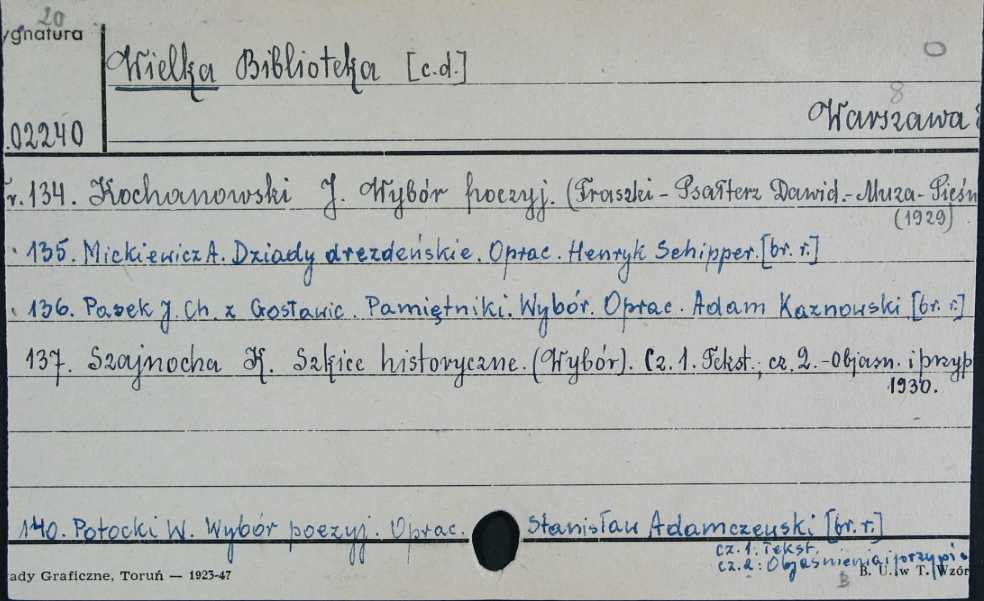 20
ygnatura
Wielka Biblioteka [c.d.]
0
8
Warszawa
.02240
r. 134. Kochanowski J. Wybór poezyj. (Fraszki - Psałterz Dawid.- Muza - Pieśn
(1929)
135. Mickiewicz A. Dziady drezdeńskie. Oprac. Henryk Schipper. [br. r.]
136. Pasek J. Ch. z Gosławic. Pamiętniki. Wybór. Oprac. Adam Kaznowski [br. r.]
137. Szajnocha K. Szkice historyczne. (Wybór). Cz. 1. Tekst.; cz. 2.-Objaśn. i przyp
1930.
140. Potocki W. Wybór poezyj. Oprac. Stanisław Adamczewski [br. r.]
cz. 1. Tekst.
cz. 2: Objaśnienia i przypi
ady Graficzne, Toruń — 1923-47
B. U. w T. Wzór
B